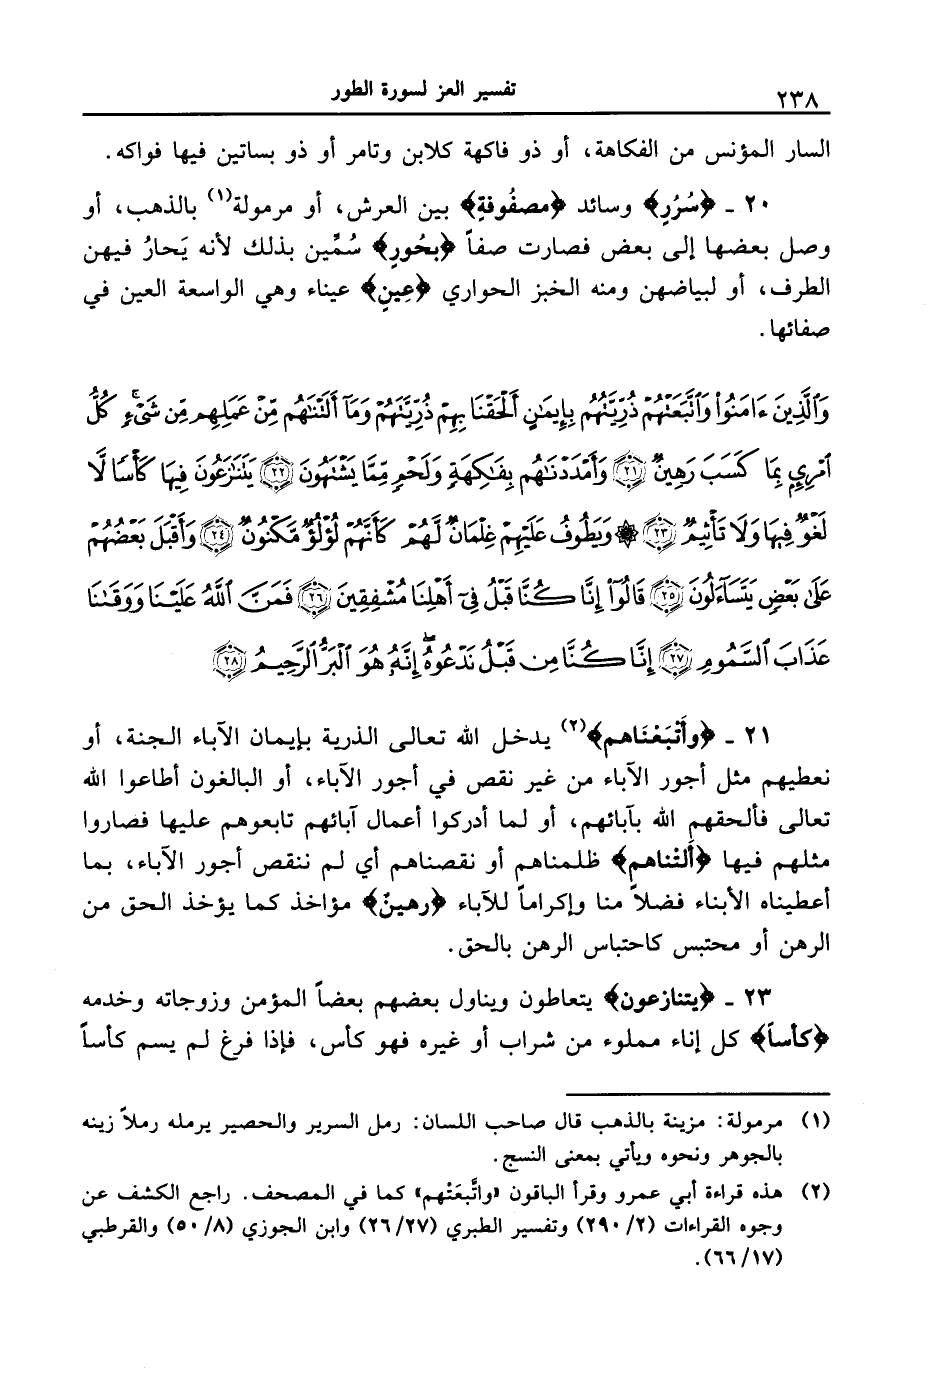 ٢٣٨
تفسير العز لسورة الطور
السار المؤنس من الفكاهة، أو ذو فاكهة كلابن وتامر أو ذو بساتين فيها فواكه.
٢٠ ـ ﴿سُرُرٍ﴾ وسائد ﴿مصفُوفةٍ﴾ بين العرش، أو مرمولة(١) بالذهب، أو
وصل بعضها إلى بعض فصارت صفاً ﴿بحُورٍ﴾ سُمِّين بذلك لأنه يَحارُ فيهن
الطرف، أو لبياضهن ومنه الخبز الحواري ﴿عِينٍ﴾ عيناء وهي الواسعة العين في
صفائها.
وَٱلَّذِينَ ءَامَنُوا۟ وَٱتَّبَعَتْهُمْ ذُرِّيَّتُهُم بِإِيمَٰنٍ أَلْحَقْنَا بِهِمْ ذُرِّيَّتَهُمْ وَمَآ أَلَتْنَٰهُم مِّنْ عَمَلِهِم مِّن شَىْءٍ ۚ كُلُّ
ٱمْرِئٍۭ بِمَا كَسَبَ رَهِينٌ ﴿٢١﴾ وَأَمْدَدْنَٰهُم بِفَٰكِهَةٍ وَلَحْمٍ مِّمَّا يَشْتَهُونَ ﴿٢٢﴾ يَتَنَٰزَعُونَ فِيهَا كَأْسًا لَّا
لَغْوٌ فِيهَا وَلَا تَأْثِيمٌ ﴿٢٣﴾ ۞ وَيَطُوفُ عَلَيْهِمْ غِلْمَانٌ لَّهُمْ كَأَنَّهُمْ لُؤْلُؤٌ مَّكْنُونٌ ﴿٢٤﴾ وَأَقْبَلَ بَعْضُهُمْ
عَلَىٰ بَعْضٍ يَتَسَآءَلُونَ ﴿٢٥﴾ قَالُوٓا۟ إِنَّا كُنَّا قَبْلُ فِىٓ أَهْلِنَا مُشْفِقِينَ ﴿٢٦﴾ فَمَنَّ ٱللَّهُ عَلَيْنَا وَوَقَىٰنَا
عَذَابَ ٱلسَّمُومِ ﴿٢٧﴾ إِنَّا كُنَّا مِن قَبْلُ نَدْعُوهُ ۖ إِنَّهُۥ هُوَ ٱلْبَرُّ ٱلرَّحِيمُ ﴿٢٨﴾
٢١ ـ ﴿وأَتْبَعْنَاهم﴾(٢) يدخل الله تعالى الذرية بإيمان الآباء الجنة، أو
نعطيهم مثل أجور الآباء من غير نقص في أجور الآباء، أو البالغون أطاعوا الله
تعالى فألحقهم الله بآبائهم، أو لما أدركوا أعمال آبائهم تابعوهم عليها فصاروا
مثلهم فيها ﴿أَلتْناهم﴾ ظلمناهم أو نقصناهم أي لم ننقص أجور الآباء، بما
أعطيناه الأبناء فضلاً منا وإكراماً للآباء ﴿رهينٌ﴾ مؤاخذ كما يؤخذ الحق من
الرهن أو محتبس كاحتباس الرهن بالحق.
٢٣ ـ ﴿يتنازعون﴾ يتعاطون ويناول بعضهم بعضاً المؤمن وزوجاته وخدمه
﴿كأساً﴾ كل إناء مملوء من شراب أو غيره فهو كأس، فإذا فرغ لم يسم كأساً
(١) مرمولة: مزينة بالذهب قال صاحب اللسان: رمل السرير والحصير يرمله رملاً زينه
بالجوهر ونحوه ويأتي بمعنى النسج.
(٢) هذه قراءة أبي عمرو وقرأ الباقون «واتَّبعَتْهم» كما في المصحف. راجع الكشف عن
وجوه القراءات (٢/ ٢٩٠) وتفسير الطبري (٢٧/ ٢٦) وابن الجوزي (٨/ ٥٠) والقرطبي
(١٧/ ٦٦).